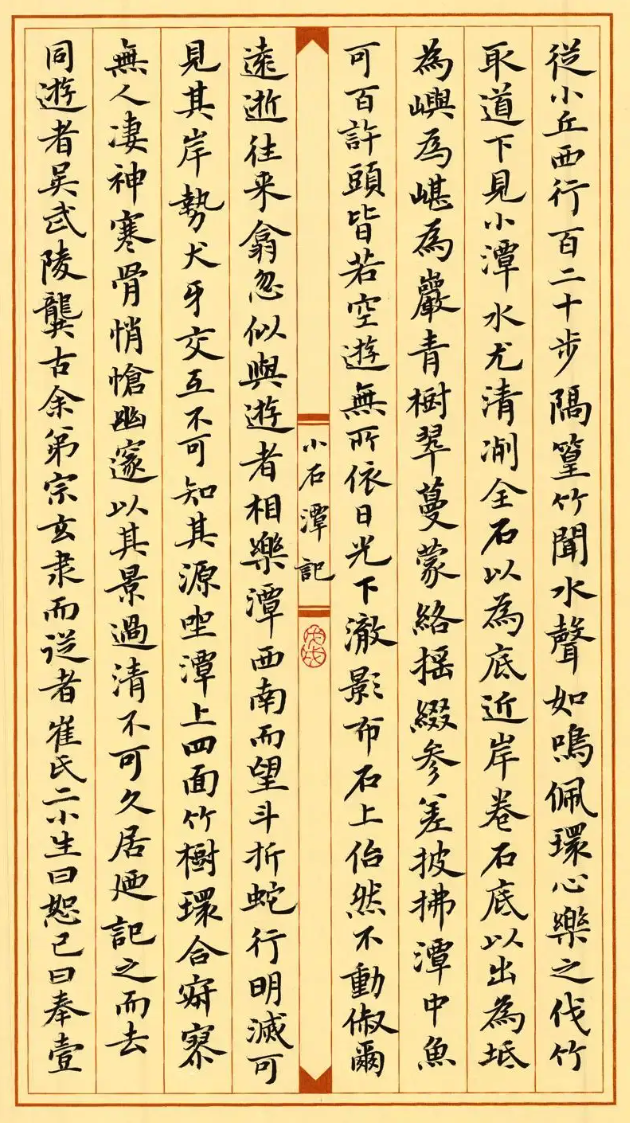 從小丘西行百二十步隔篁竹聞水聲如鳴佩環心樂之伐竹
取道下見小潭水尤清冽全石以為底近岸卷石底以出為坻
為嶼為嵁為巖青樹翠蔓蒙絡搖綴參差披拂潭中魚
可百許頭皆若空遊無所依日光下澈影布石上佁然不動俶爾
小石潭記
戊戌
遠逝往来翕忽似與遊者相樂潭西南而望斗折蛇行明滅可
見其岸勢犬牙交互不可知其源坐潭上四面竹樹環合寂寥
無人凄神寒骨悄愴幽邃以其景過清不可久居迺記之而去
同遊者吴武陵龔古余弟宗玄隸而從者崔氏二小生曰恕己曰奉壹